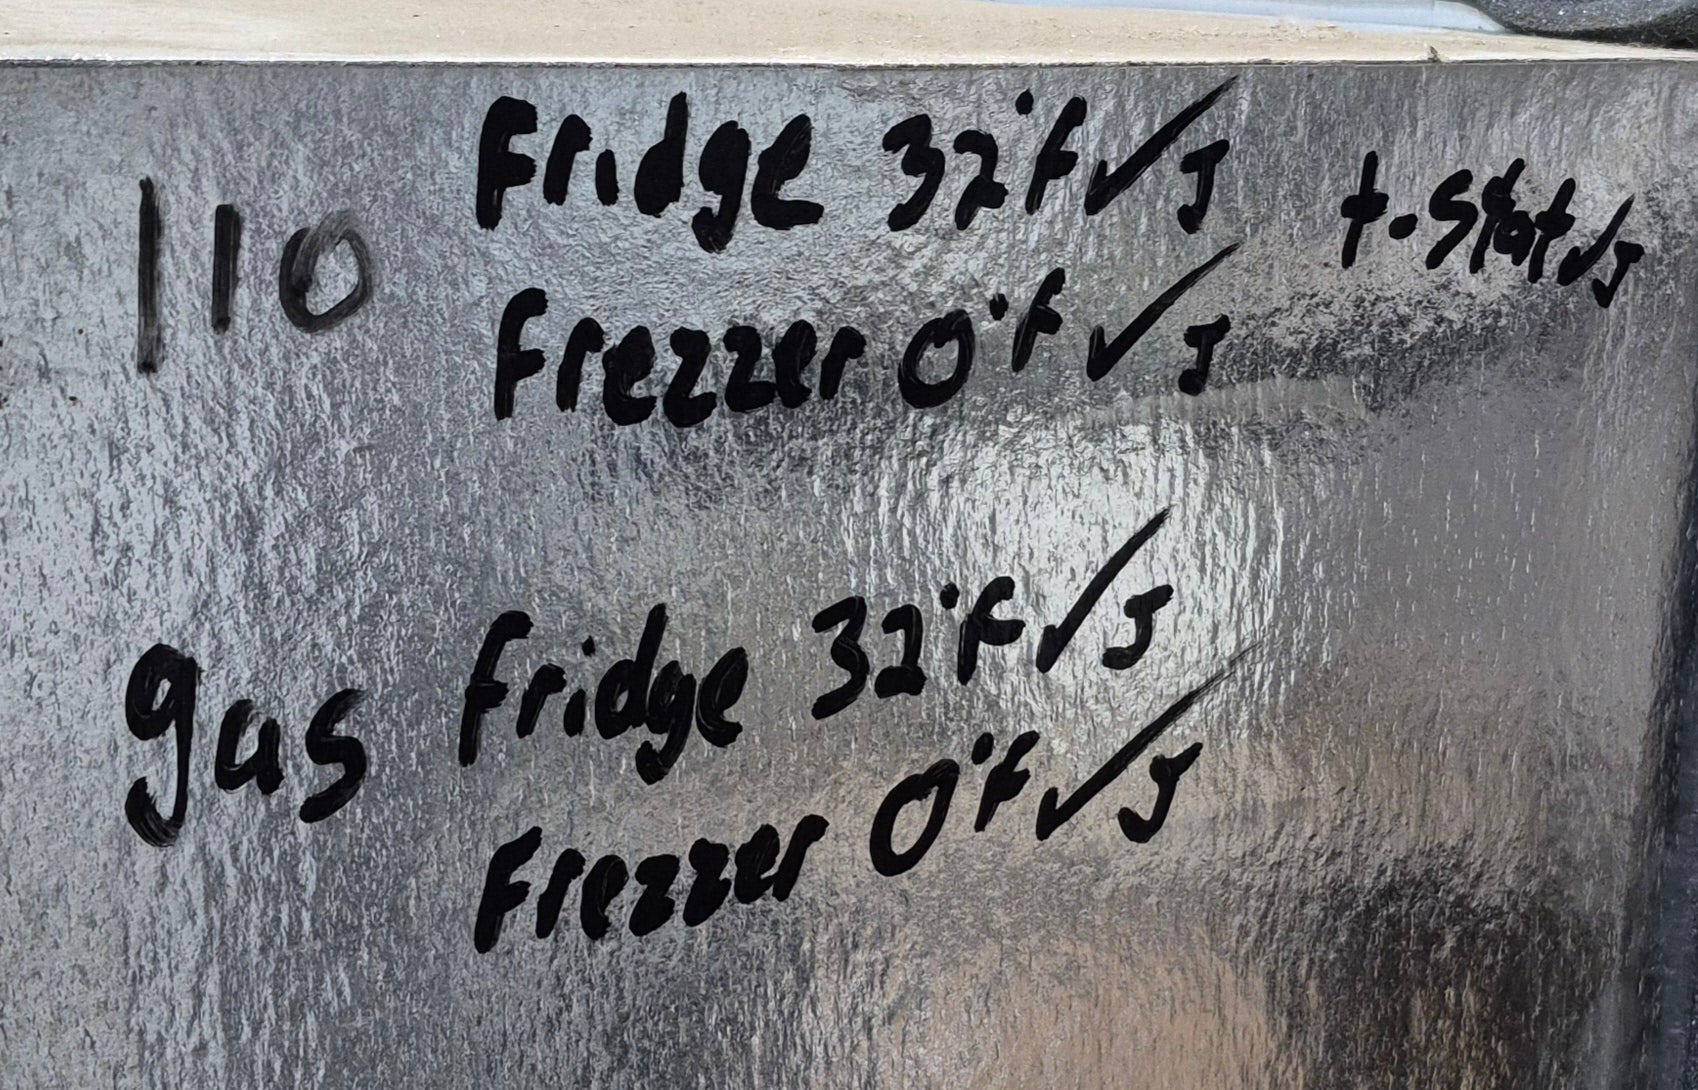 110 Fridge 32°F ✓ J t-stat ✓ J
Frezzer 0°F ✓ J
gas Fridge 32°F ✓ J
Frezzer 0°F ✓ J